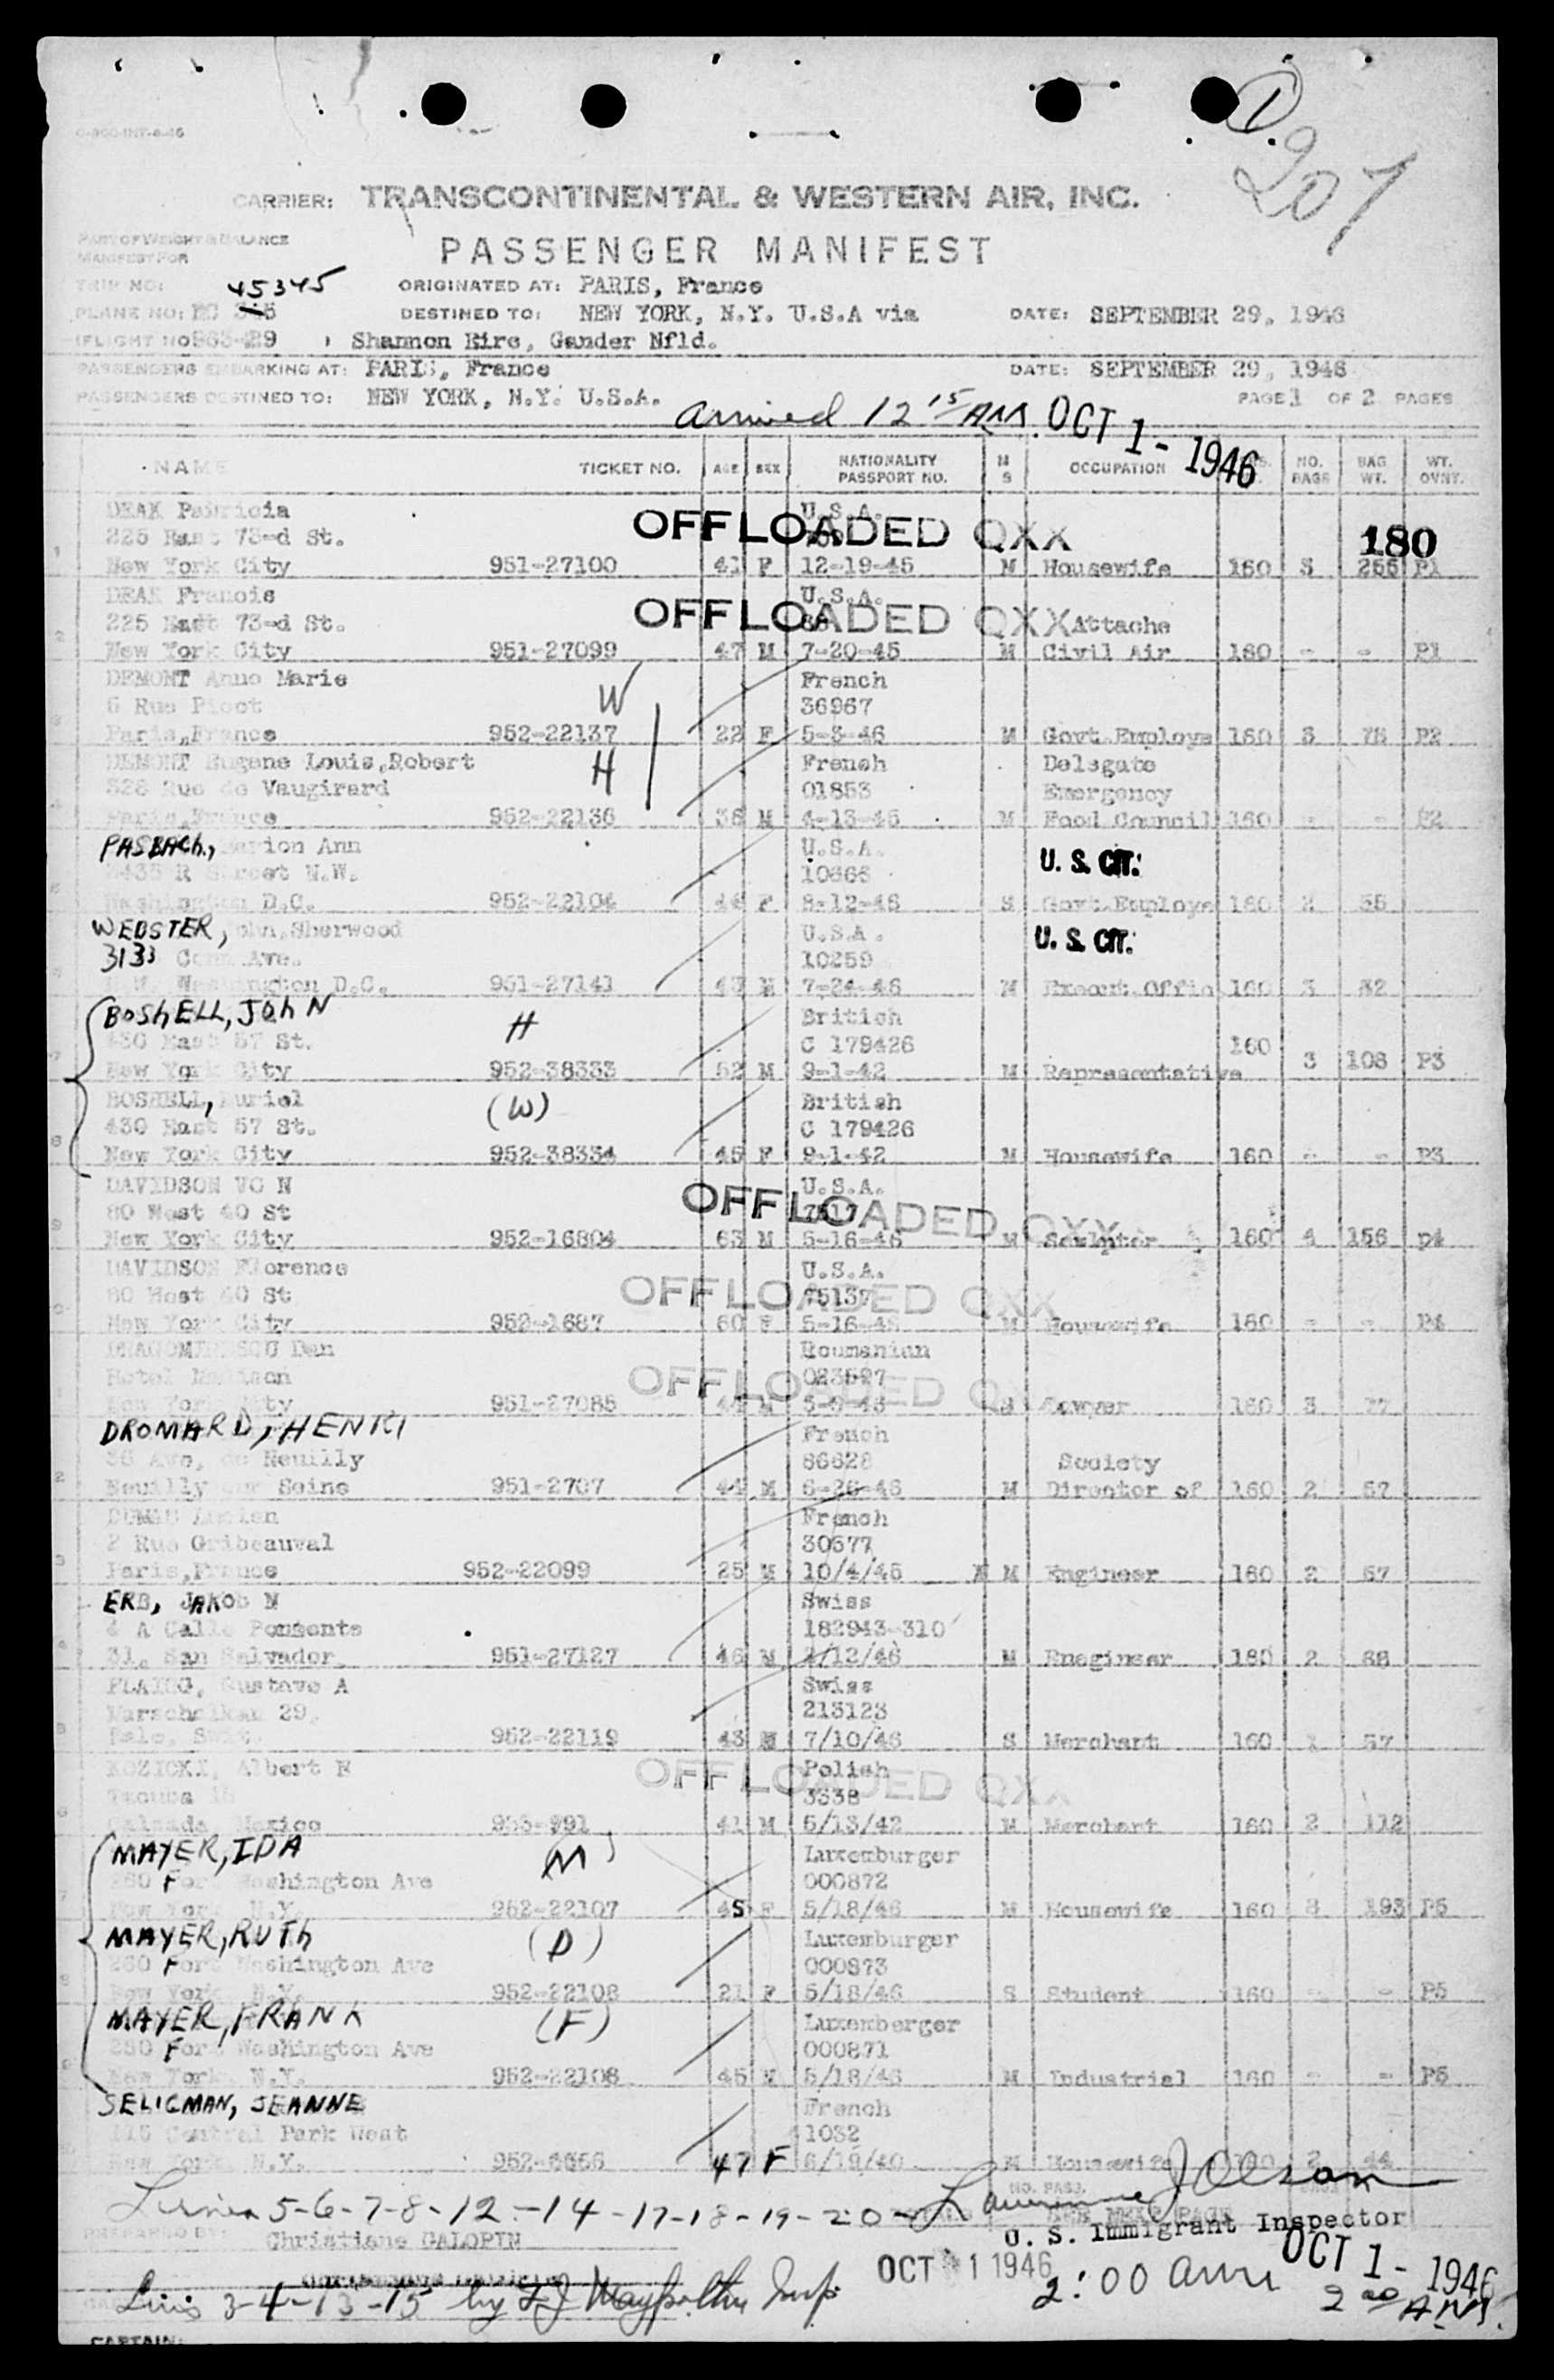 1
207
O-900-INT-6-46
CARRIER: TRANSCONTINENTAL & WESTERN AIR, INC.
PART OF WEIGHT & BALANCE
MANIFEST FOR
PASSENGER MANIFEST
TRIP NO: 45345 ORIGINATED AT: PARIS, France
PLANE NO: DESTINED TO: NEW YORK, N.Y. U.S.A via DATE: SEPTEMBER 29, 1946
FLIGHT NO 963-29 Shannon Eire, Gander Nfld.
PASSENGERS EMBARKING AT: PARIS, France DATE: SEPTEMBER 29, 1946
PASSENGERS DESTINED TO: NEW YORK, N.Y. U.S.A. PAGE 1 OF 2 PAGES
arrived 12 15 AM OCT 1 - 1946
NAME TICKET NO. AGE SEX NATIONALITY PASSPORT NO. M S OCCUPATION NO. BAGS BAG WT. WT. OVNT.
DEAK Patricia U.S.A.
225 East 73-d St. OFFLOADED QXX 180
New York City 951-27100 41 F 12-19-45 M Housewife 160 5 255 P1
DEAK Francis U.S.A.
225 East 73-d St. OFFLOADED QXX Attache
New York City 951-27099 47 M 7-20-45 M Civil Air 160 - - P1
DEMONT Anne Marie W French
6 Rue Picot 36967
Paris,France 952-22137 22 F 5-3-46 M Govt.Employe 160 3 75 P2
DEMONT Eugene Louis,Robert H French Delegate
326 Rue de Vaugirard 01853 Emergency
Paris,France 952-22136 38 M 4-13-46 M Food Council 160 - - P2
PASBACh, Marion Ann U.S.A.
R Street N.W. 10666 U. S. CIT.
Washington D.C. 952-22104 44 F 8-12-46 S Govt.Employe 160 2 55
WEBSTER, John,Sherwood U.S.A.
3133 Conn Ave. 10259 U. S. CIT.
N.W. Washington D.C. 951-27141 43 M 7-24-46 M Execut.Offic 160 3 82
BOShELL, JOhN H British
430 East 57 St. C 179426 160
New York City 952-38333 52 M 9-1-42 M Representative 3 108 P3
BOSHELL, Muriel (W) British
430 East 57 St. C 179426
New York City 952-38334 45 F 9-1-42 M Housewife 160 - - P3
DAVIDSON VO N U.S.A.
80 West 40 St OFFLOADED QXX
New York City 952-16804 63 M 5-16-46 M Sculptor 160 4 156 P4
DAVIDSON Florence U.S.A.
80 West 40 St OFFLOADED QXX 75137
New York City 952-1687 60 F 5-16-46 M Housewife 160 - - P4
Dan Roumanian
Hotel Madison OFFLOADED QXX 023527
New York City 951-27085 44 M S Lawyer 160 3 77
DROMARD, HENRI French
36 Ave, de Neuilly 86628 Society
Neuilly sur Seine 951-2707 44 M 6-26-46 M Director of 160 2 57
DUMAS French
2 Rue Gribeauval 30677
Paris,France 952-22099 25 M 10/4/45 M Engineer 160 2 67
ERB, JAKOB N Swiss
4 A Calle Ponsonte 182943-310
31, San Salvador 951-27127 46 M 2/12/46 M Eneginser 160 2 88
Gustave A Swiss
29, 213123
952-22119 43 M 7/10/46 S Merchant 160 1 57
KOZICKI, Albert E Polish
Tacuba OFFLOADED QXX 3338
Mexico 41 M 5/13/42 M Merchant 160 2 112
MAYER, IDA (M) Luxemburger
260 Fort Washington Ave 000872
New York N.Y. 952-22107 45 F 5/18/46 M Housewife 160 8 193 P5
MAYER, RUTh (D) Luxemburger
260 Fort Washington Ave 000873
New York N.Y. 952-22108 21 F 5/18/46 S Student 160 - - P5
MAYER, FRANK (F) Luxemberger
260 Fort Washington Ave 000871
New York N.Y. 952-22106 45 M 5/18/46 M Industrial 160 - - P5
SELIGMAN, JEANNE French
115 Central Park West 1032
New York N.Y. 952-6656 47 F 6/19/40 M Housewife 160 2 44
Lines 5-6-7-8-12-14-17-18-19-20- Lawrence J Olson
NO. PASS.
SEE NEXT PAGE
U. S. Immigrant Inspector
PREPARED BY: Christiane GALOPIN
OCT 1 1946 2:00 am OCT 1 - 1946
2 00 AM.
Lines 3-4-13-15 by Insp
CAPTAIN: